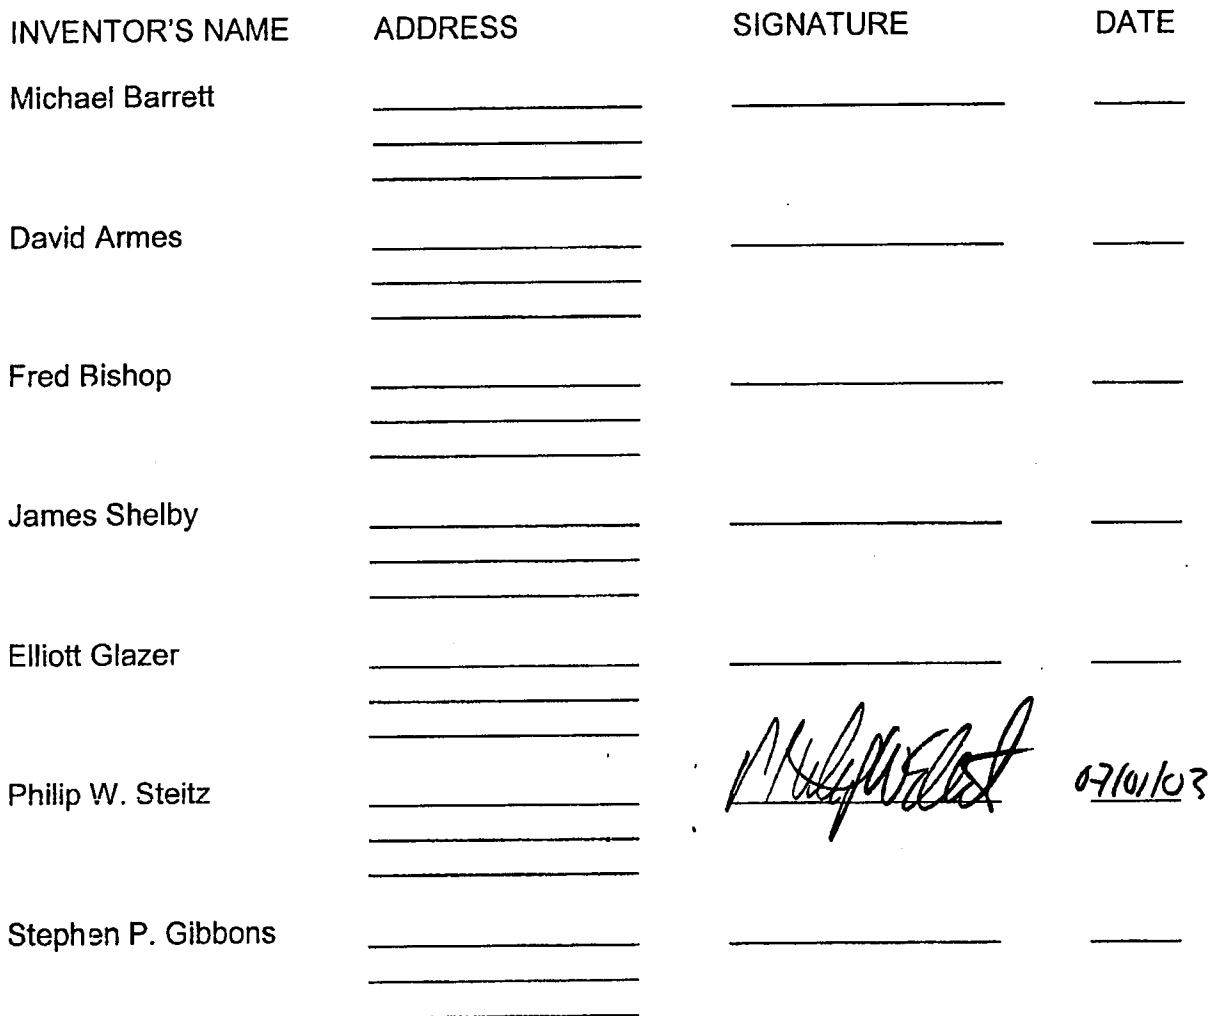 INVENTOR'S NAME ADDRESS SIGNATURE DATE
Michael Barrett
David Armes
Fred Bishop
James Shelby
Elliott Glazer
Philip W. Steitz 07/01/03
Stephen P. Gibbons